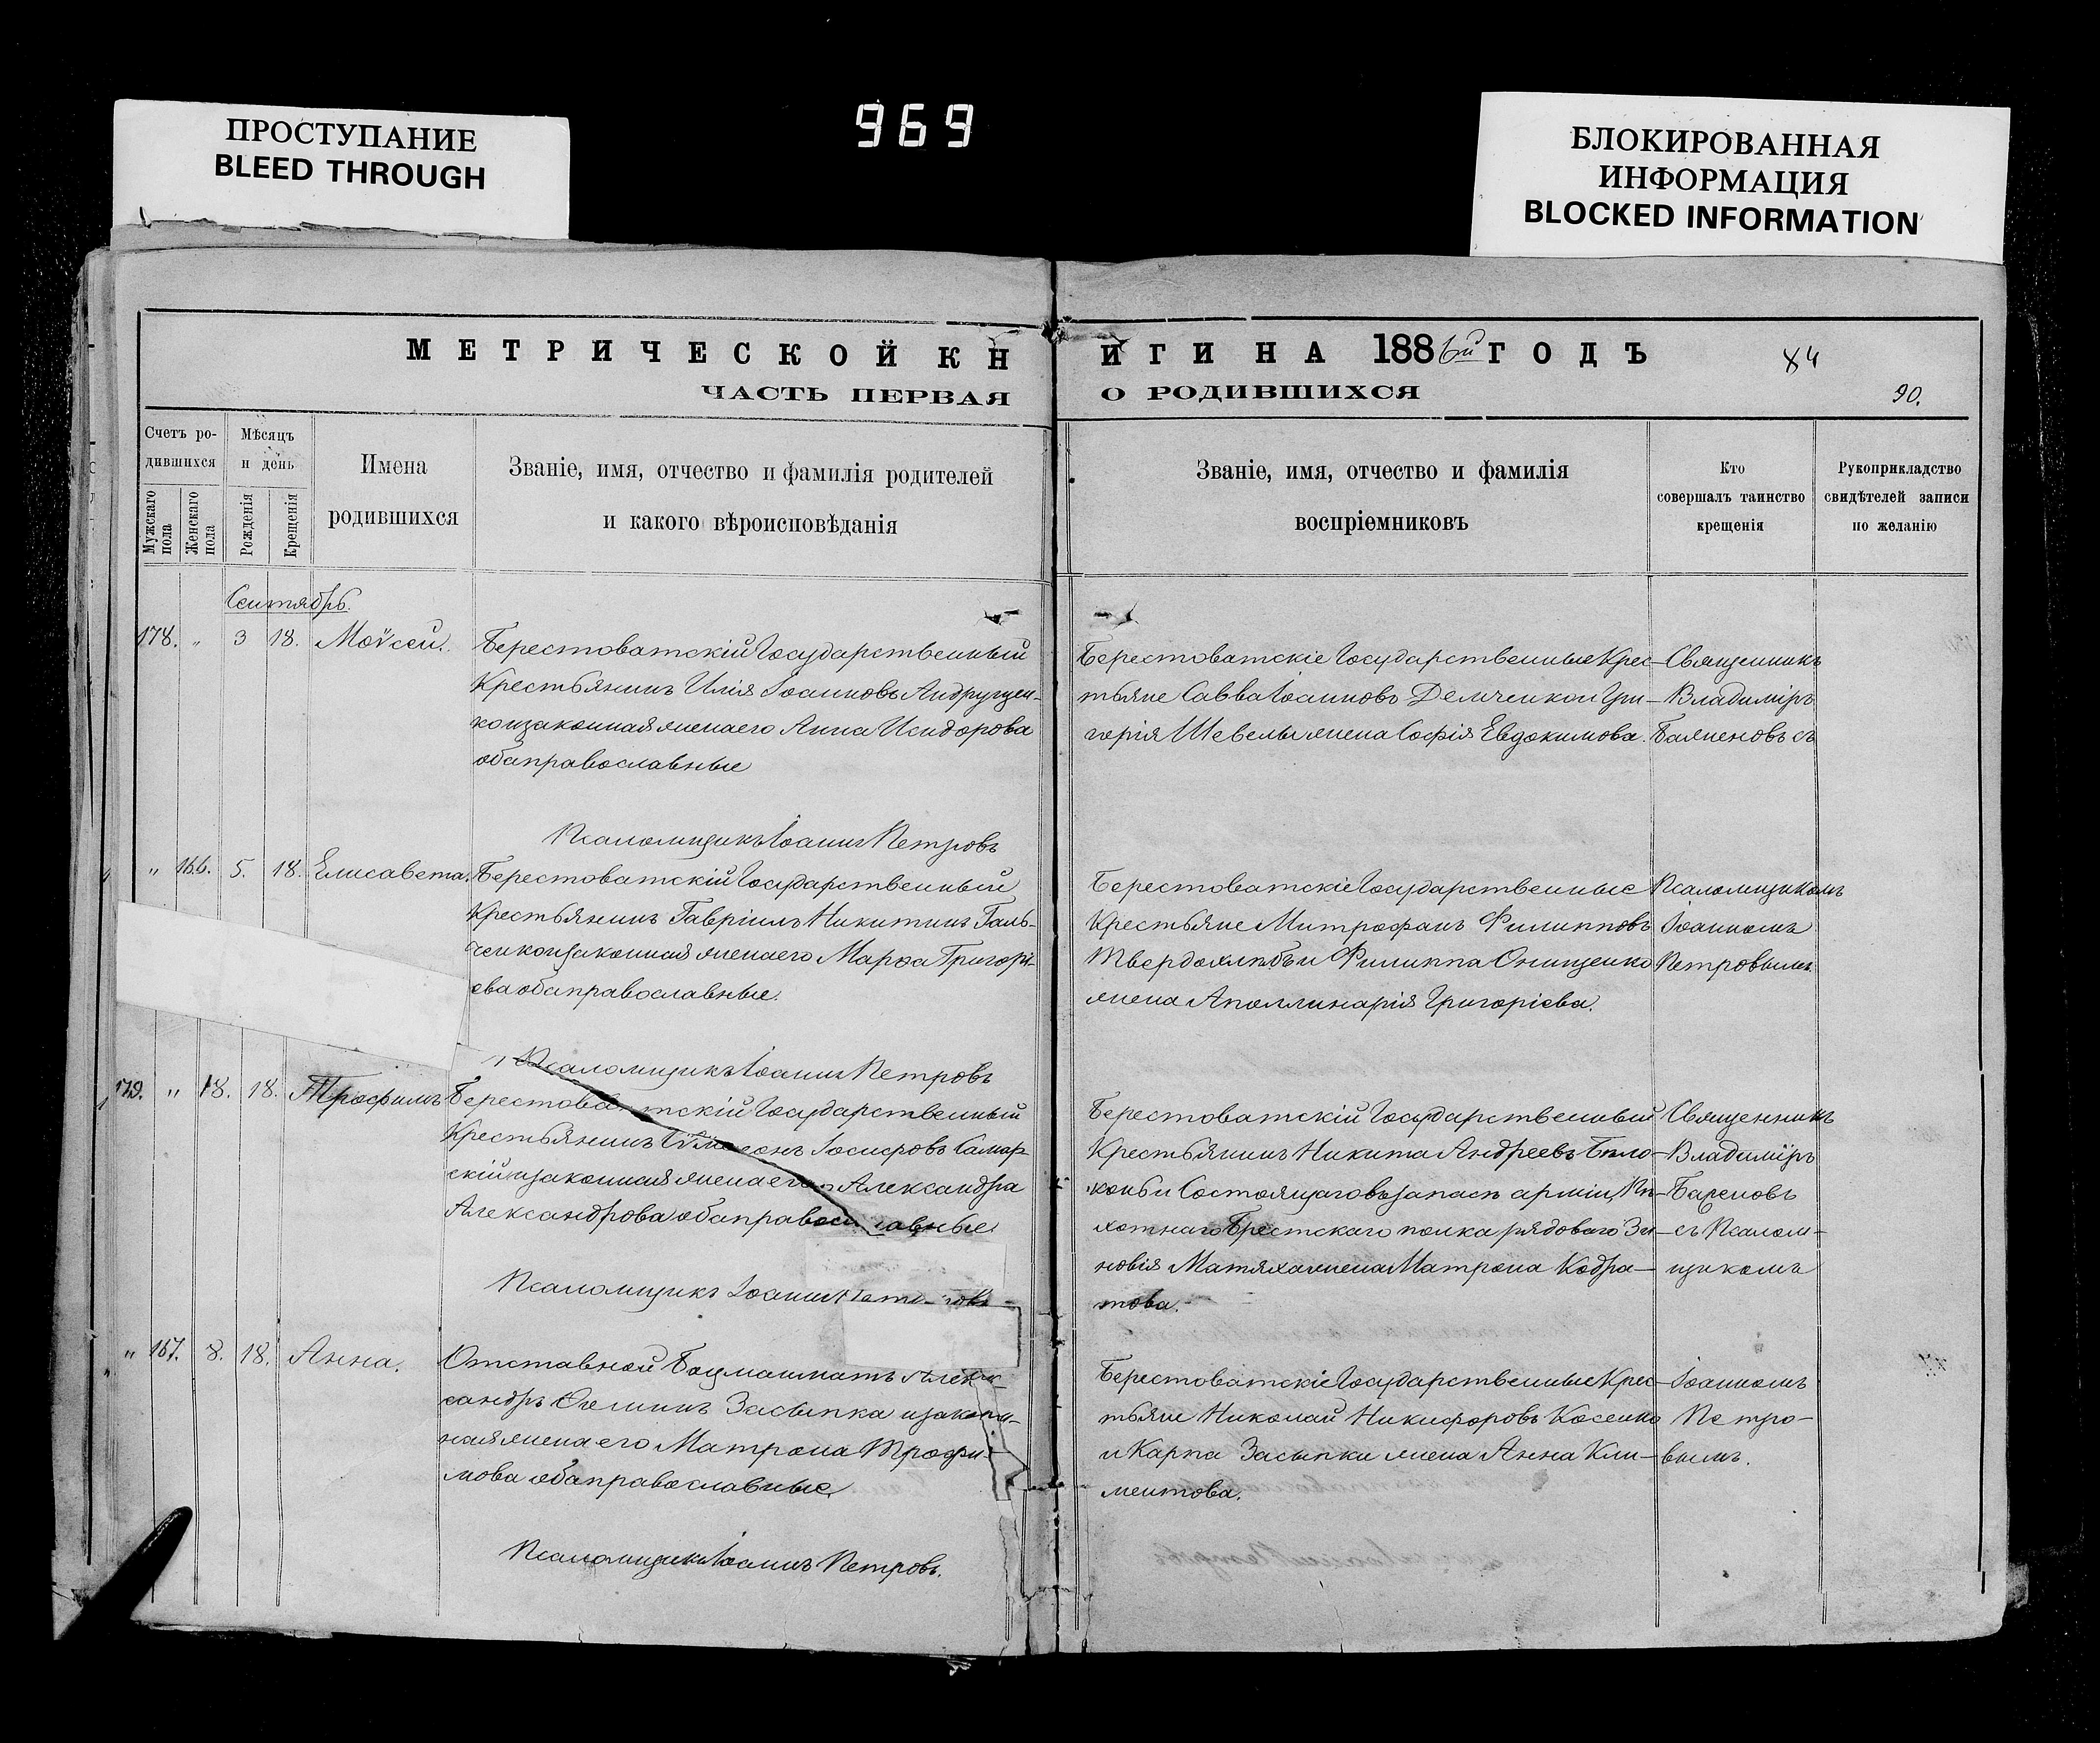 ПРОСТУПАНИЕ
BLEED THROUGH
969
БЛОКИРОВАННАЯ
ИНФОРМАЦИЯ
BLOCKED INFORMATION
МЕТРИЧЕСКОЙ КНИГИ НА 1886й ГОДЪ
84
ЧАСТЬ ПЕРВАЯ О РОДИВШИХСЯ
90.
Счетъ ро-
дившихся
Мужскаго пола
Женскаго пола
Мѣсяцъ
и день
Рожденія
Крещенія
Имена
родившихся
Званіе, имя, отчество и фамилія родителей
и какого вѣроисповѣданія
Званіе, имя, отчество и фамилія
воспріемниковъ
Кто
совершалъ таинство
крещенія
Рукоприкладство
свидѣтелей записи
по желанію
Сентябрь.
178. " 3 18. Моѵсей.
Берестоватскій Государственный
Крестьянинъ Илія Іоанновъ Андрущен-
ко и законная жена его Анна Исидорова
оба православные
Псаломщикъ Іоаннъ Петровъ
Берестоватскіе Государственные Крес-
тьяне Савва Іоанновъ Демченко и Гри-
горія Шевелы жена Софія Евдокимова.
Священникъ
Владиміръ
Баженовъ съ
" 166. 5. 18. Елисавета.
Берестоватскій Государственный
Крестьянинъ Гавріилъ Никитинъ Галь-
ченко и законная жена его Марѳа Григорі-
ева оба православные.
Псаломщикъ Іоаннъ Петровъ
Берестоватскіе Государственные
Крестьяне Митрофанъ Филипповъ
Твердохлѣбъ и Филиппа Онищенко
жена Аполлинарія Григоріева.
Псаломщикомъ
Іоанномъ
Петровымъ.
179. " 18. 18. Трофимъ
Берестоватскій Государственный
Крестьянинъ Сѵмеонъ Іосифовъ Самар-
скій и законная жена его Александра
Александрова оба православные.
Псаломщикъ Іоаннъ Петровъ
Берестоватскій Государственный
Крестьянинъ Никита Андреевъ Бѣло-
конь и Состоящаго въ запасѣ арміи, Пѣ-
хотнаго Брестскаго полка рядоваго Зи-
новія Матяха жена Матрона Кодра-
това.
Священникъ
Владиміръ
Баженовъ
съ Псалом-
щикомъ
" 167. 8. 18. Анна.
Отставной Боцманматъ Алек-
сандръ Засыпка и закон-
ная жена его Матрона Трофи-
мова оба православные.
Псаломщикъ Іоаннъ Петровъ.
Берестоватскіе Государственные Крес-
тьяне Николай Никифоровъ Косенко
и Карпа Засыпки жена Анна Кли-
ментова.
Іоанномъ
Петро-
вымъ.